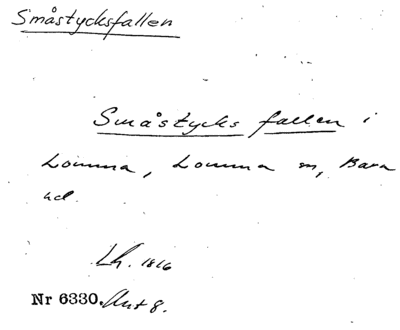 Småstycksfallen
Småstycks fallen i
Lomma, Lomma sn, Bara
hd.
Lh. 1816
Nr 6330. Akt 8.